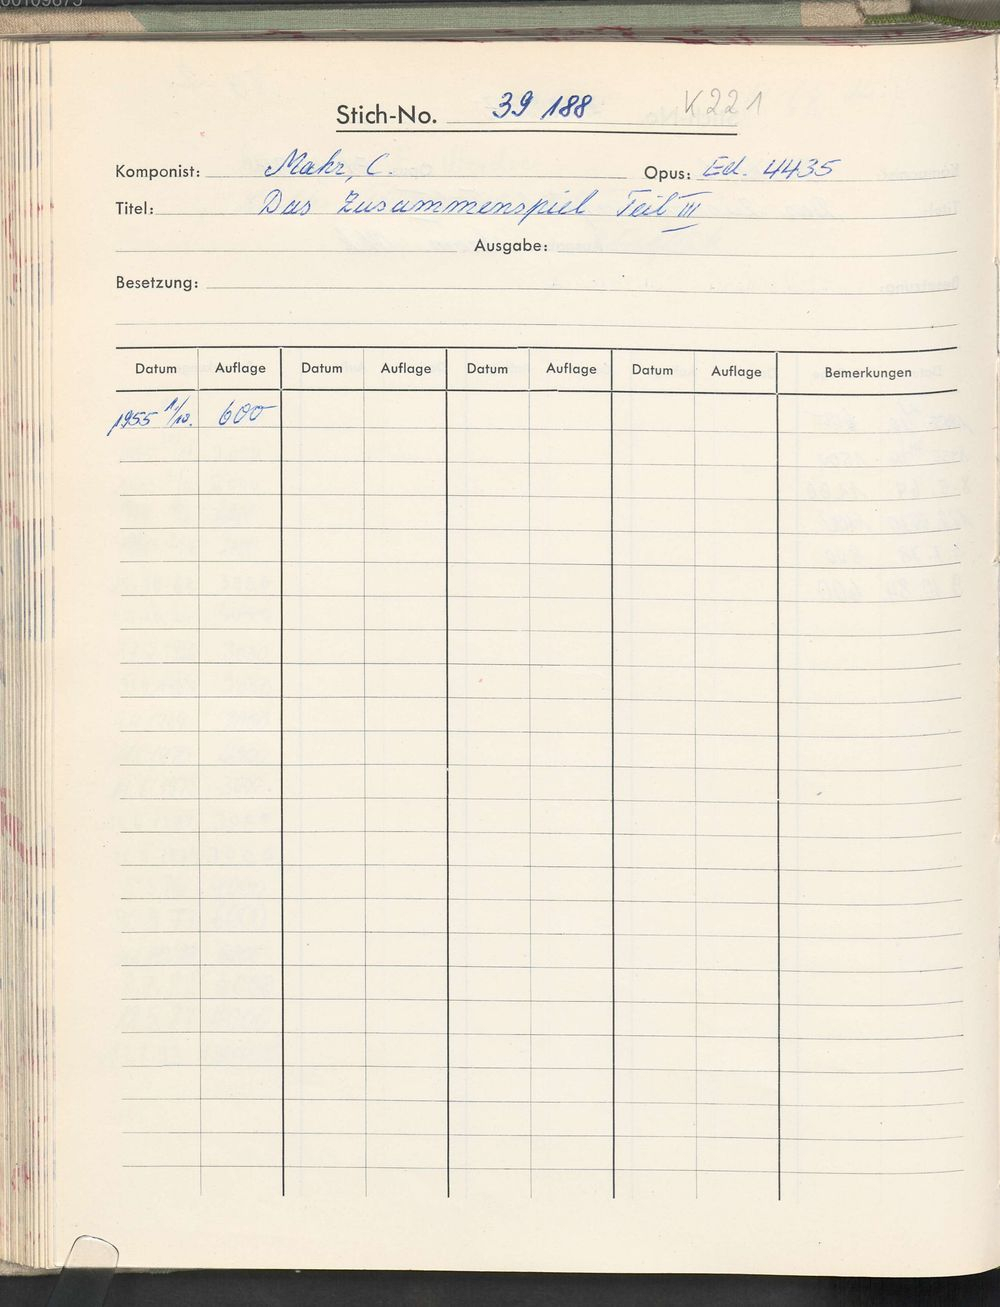 Stich-No. 39 188 K 221
Komponist: Mahr, C. Opus: Ed. 4435
Titel: Das Zusammenspiel Teil III
Ausgabe:
Besetzung:
Datum Auflage Datum Auflage Datum Auflage Datum Auflage Bemerkungen
1955 1/10. 600